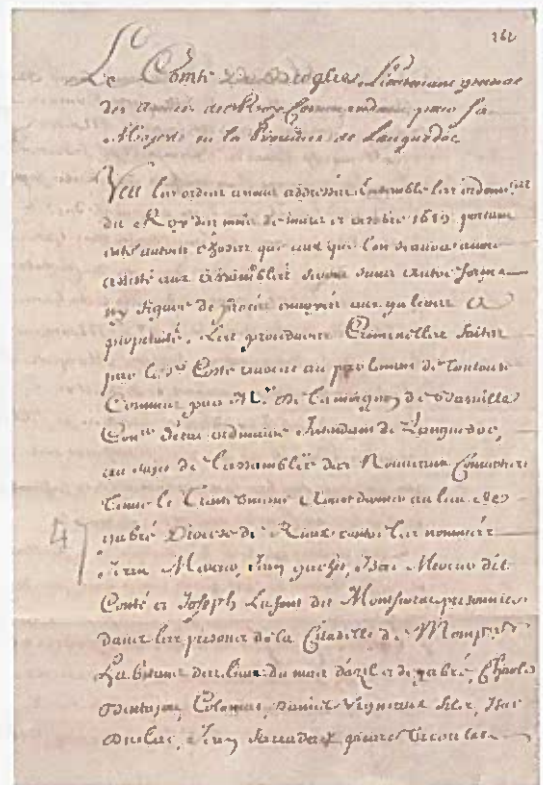 262
Le Comte de Broglie, Lieutenant general
des armées du Roy Commandant pour Sa
Majesté en la Province de Languedoc
Veu les ordres a nous adressés Ensemble les ordonnces
du Roy des mois de mars et octobre 1689 portant
entre autres choses que ceux que l'on scaura avoir
assisté aux assemblées seront sans autre forme
ny figure de procés envoyés aux galeres a
perpetuité. Les procedures Criminelles faites
par le Sr Coste avocat au parlement de Toulouse
Commis par Mr De Lamoignon de Basville
Conr d'etat ordinaire Intendant de Languedoc,
au sujet de l'assemblée des Nouveaux Convertis
tenue le au lieu de
gabré Diocese de Rieux contre les nommés
Jean Isac dit
Conté et Joseph Lafont du prisonniers
dans les prisons de la Citadelle de Montpr
habitans des lieux du mas d'azil et de gabré, Charles
Daniel Vigneaux filx, Isac
Jean
47